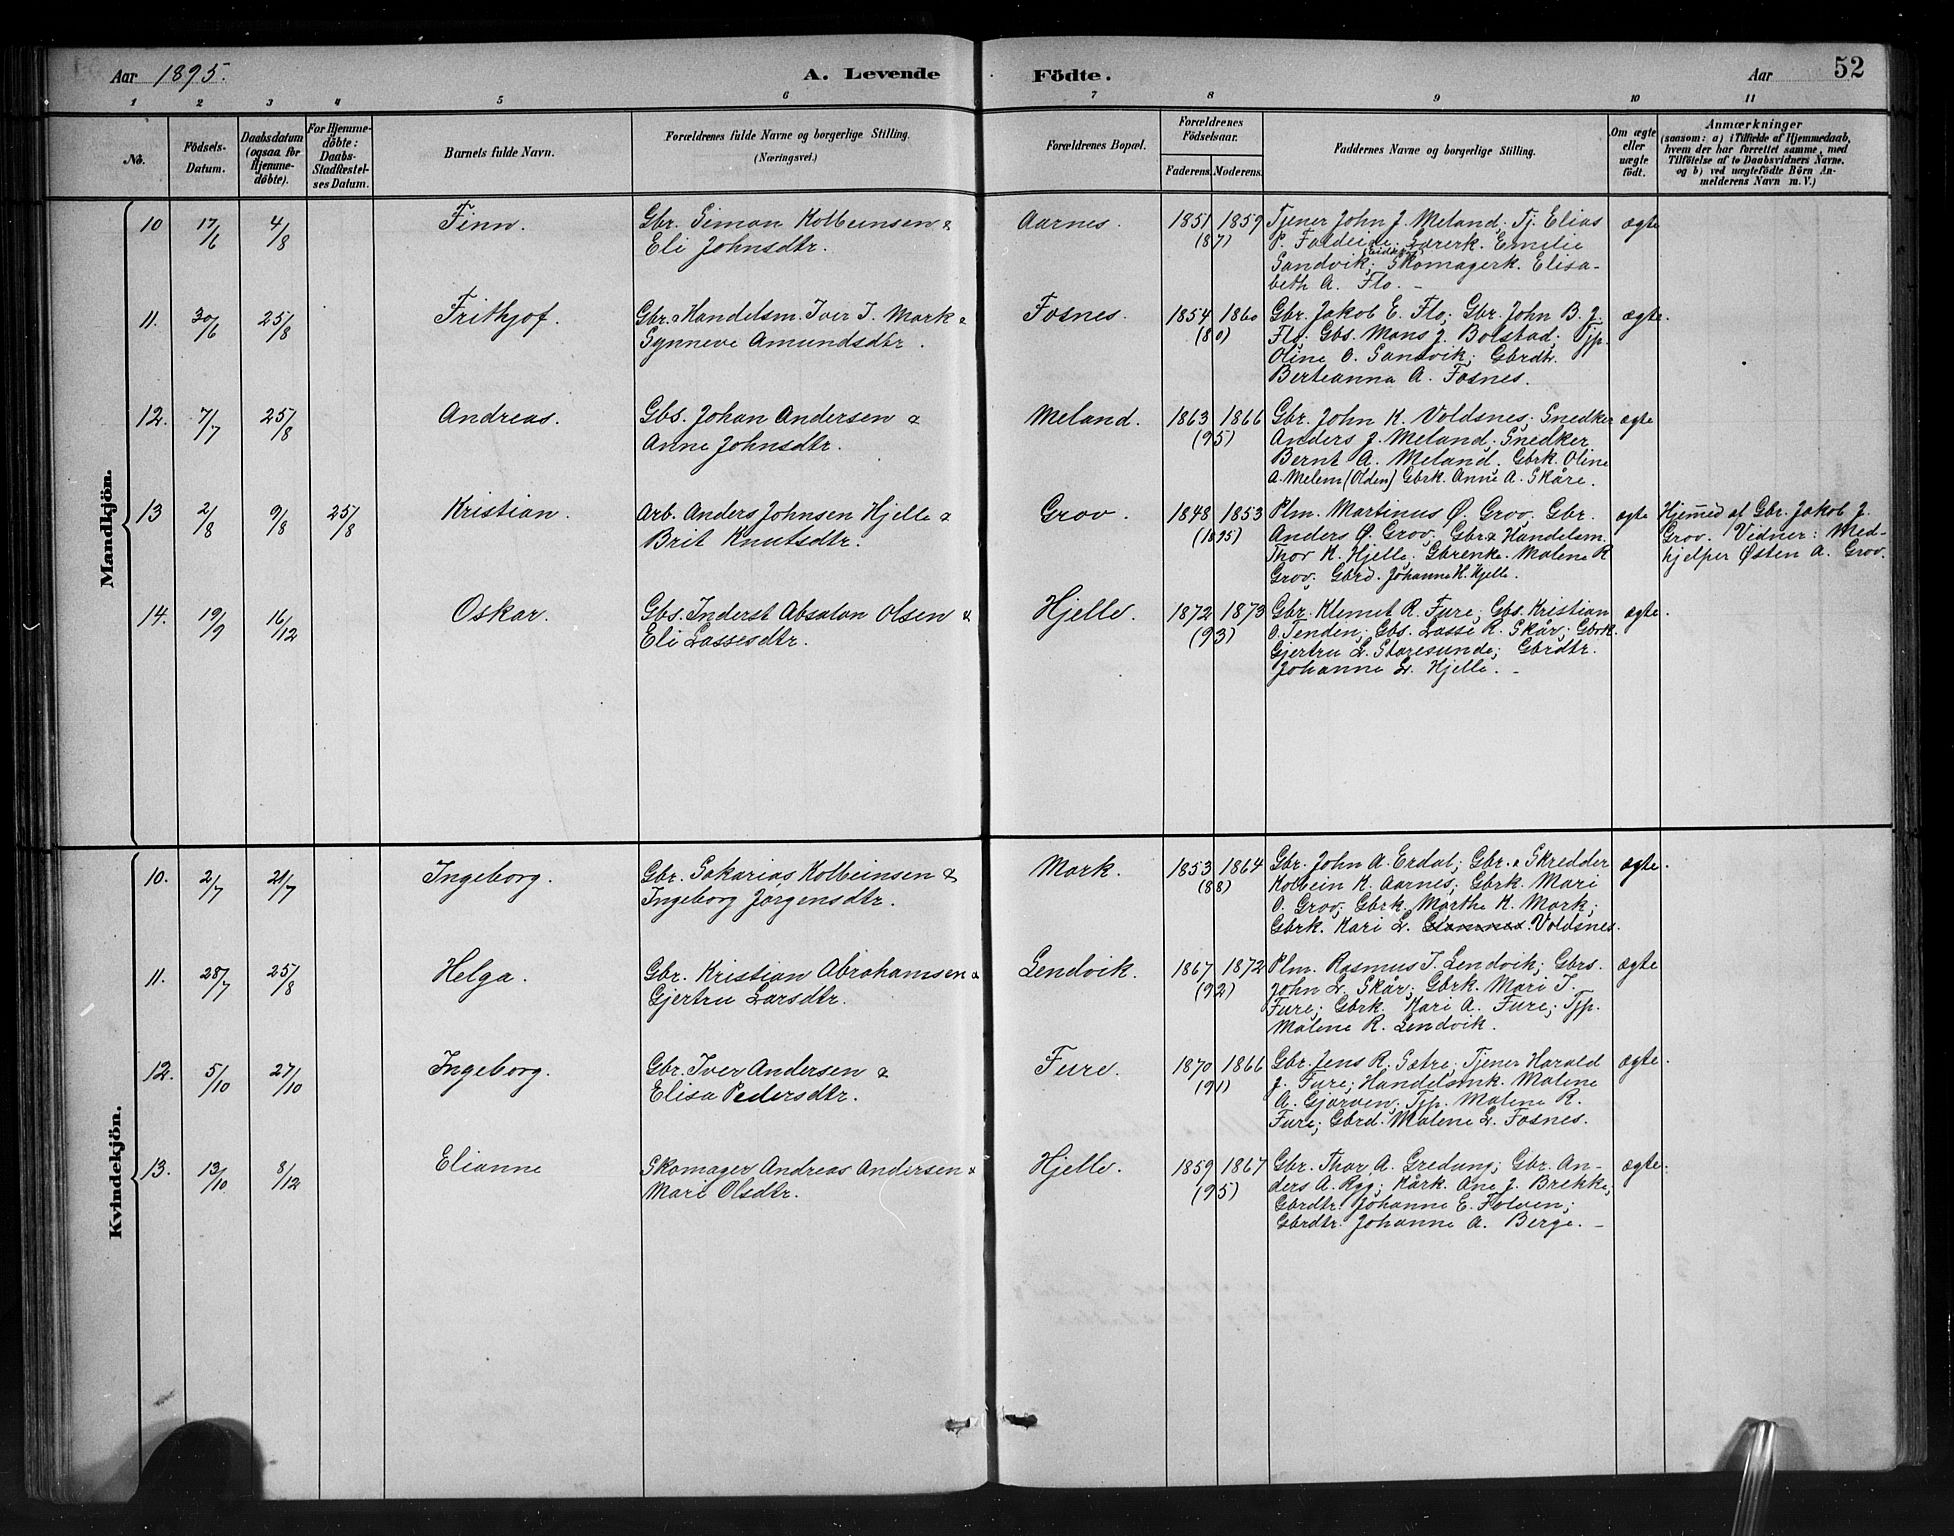 Aar 1895. A. Levende Fødte. Aar 52
1 2 3 4 5 6 7 8 9 10 11
No. Fødsels-Datum. Daabsdatum (ogsaa for Hjemmedøbte). For Hjemmedøbte: Daabs-Stadfæstelses Datum. Barnets fulde Navn. Forældrenes fulde Navne og borgerlige Stilling. (Næringsvei.) Forældrenes Bopæl. Forældrenes Fødselsaar. Faderens. Moderens. Faddernes Navne og borgerlige Stilling. Om ægte eller uægte født. Anmærkninger (saasom: a) i Tilfælde af Hjemmedaab, hvem der har forrettet samme, med Tilføielse af to Daabsvidners Navne, og b) ved uægtefødte Børn Anmelderens Navn m. V.)
Mandkjön.
10 17/6 4/8 Finn. Gbr. Simon Kolbeinsen & Aarnes. 1851 1859 Tjener John J. Meland; Tj. Elias ægte
Eli Johnsdtr. (87) P. Faldeide; Lærerk. Emilie
Sandvik; Skomagerk. Elisa-
beth A. Flo. –
11. 30/6 25/8 Frithjof. Gbr. & Handelsm. Iver I. Mork & Fosnes. 1854 1860 Gbr. Jakob E. Flo; Gbr. John B. J. ægte.
Synneve Amundsdtr. (80) Flo; Gbs. Mons J. Bolstad; Tjp.
Oline O. Sandvik; Gbrdtr.
Berteanna A. Fosnes.
12. 7/7 25/8 Andreas. Gbs. Johan Andersen & Meland. 1863 1866 Gbr. John K. Voldsnes; Snedker ægte
Anne Johnsdtr. (95) Anders J. Meland. Snedker
Bernt A. Meland. Gbrk. Oline
A. Melem (Olden) Gbrk. Anne A. Skåre.
13 2/8 9/8 25/8 Kristian. Arb. Anders Johnsen Hjelle & Grov. 1848 1853 Plm. Martinus Ø. Grov; Gbr. ægte Hjemmed af Gbr. Jakob J.
Brit Knutsdtr. (1895) Anders Ø. Grov; Gbr. & Handelsm. Grov. Vidner: Med-
Thor K. Hjelle; Gbrenke. Malene R hjelper Østen A. Grov.
Grov; Gbrd. Johanne H. Hjelle.
14. 19/9 16/12 Oskar. Gbs. Inderst Absalon Olsen & Hjelle. 1872 1873 Gbr. Klemet R. Fure; Gbs. Kristian ægte.
Eli Lassesdtr. (93) O. Tenden; Gbs. Lasse R. Skår; Gbrk.
Gjertru L. Staresunde; Gbrdtr.
Johanne L. Hjelle. –
Kvindekjön.
10. 2/7 21/7 Ingeborg. Gbr. Sakarias Kolbeinsen & Mork. 1853 1864 Gbr. John A. Erdal; Gbr. & Skredder ægte.
Ingeborg Jørgensdtr. (88) Kolbein K. Aarnes; Gbrk. Mari
O. Grov; Gbrk. Marthe K. Mork;
Gbrk. Kari L. Voldsnes.
11. 28/7 25/8 Helga. Gbr. Kristian Abrahamsen & Lendvik. 1867 1872 Plm. Rasmus I. Lendvik; Gbrs. ægte
Gjertru Larsdtr. (92) John L. Skår; Gbrk. Mari I.
Fure; Gbrk. Kari A. Fure; Tjp.
Malene R. Lendvik.
12. 5/10 27/10 Ingeborg. Gbr. Iver Andersen & Fure. 1870 1866 Gbr. Jens R. Sætre; Tjener Harald ægte.
Elisa Pedersdtr. (91) J. Fure; Handelsmk. Malene
A. Gjørven; Tjp. Malene R.
Fure; Gbrd. Malene L. Fosnes.
13. 13/10 8/12 Elianne Skomager Andreas Andersen & Hjelle. 1859 1867 Gbr. Thor A. Gredung; Gbr. An- ægte.
Mari Olsdtr. (95) ders A. Rygg; Kårk. Ane J. Brekke;
Gbrdtr. Johanne E. Folven;
Gbrdtr. Johanne A. Berge. –